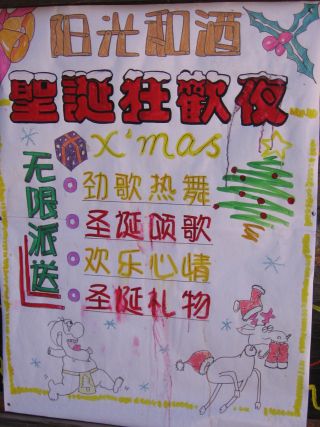 阳光和酒
聖誕狂歡夜
X'mas
无限派送
劲歌热舞
圣诞颂歌
欢乐心情
圣诞礼物